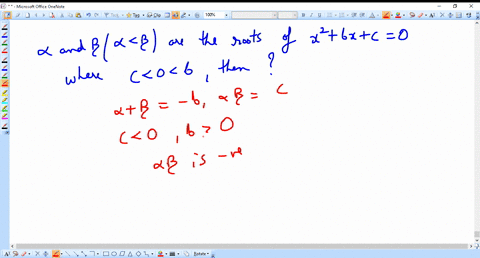 Microsoft Office OneNote
α and β (α < β) are the roots of x²+bx+c=0
where c<0<b, then ?
α+β = -b, αβ = c
c<0, b>0
αβ is -ve